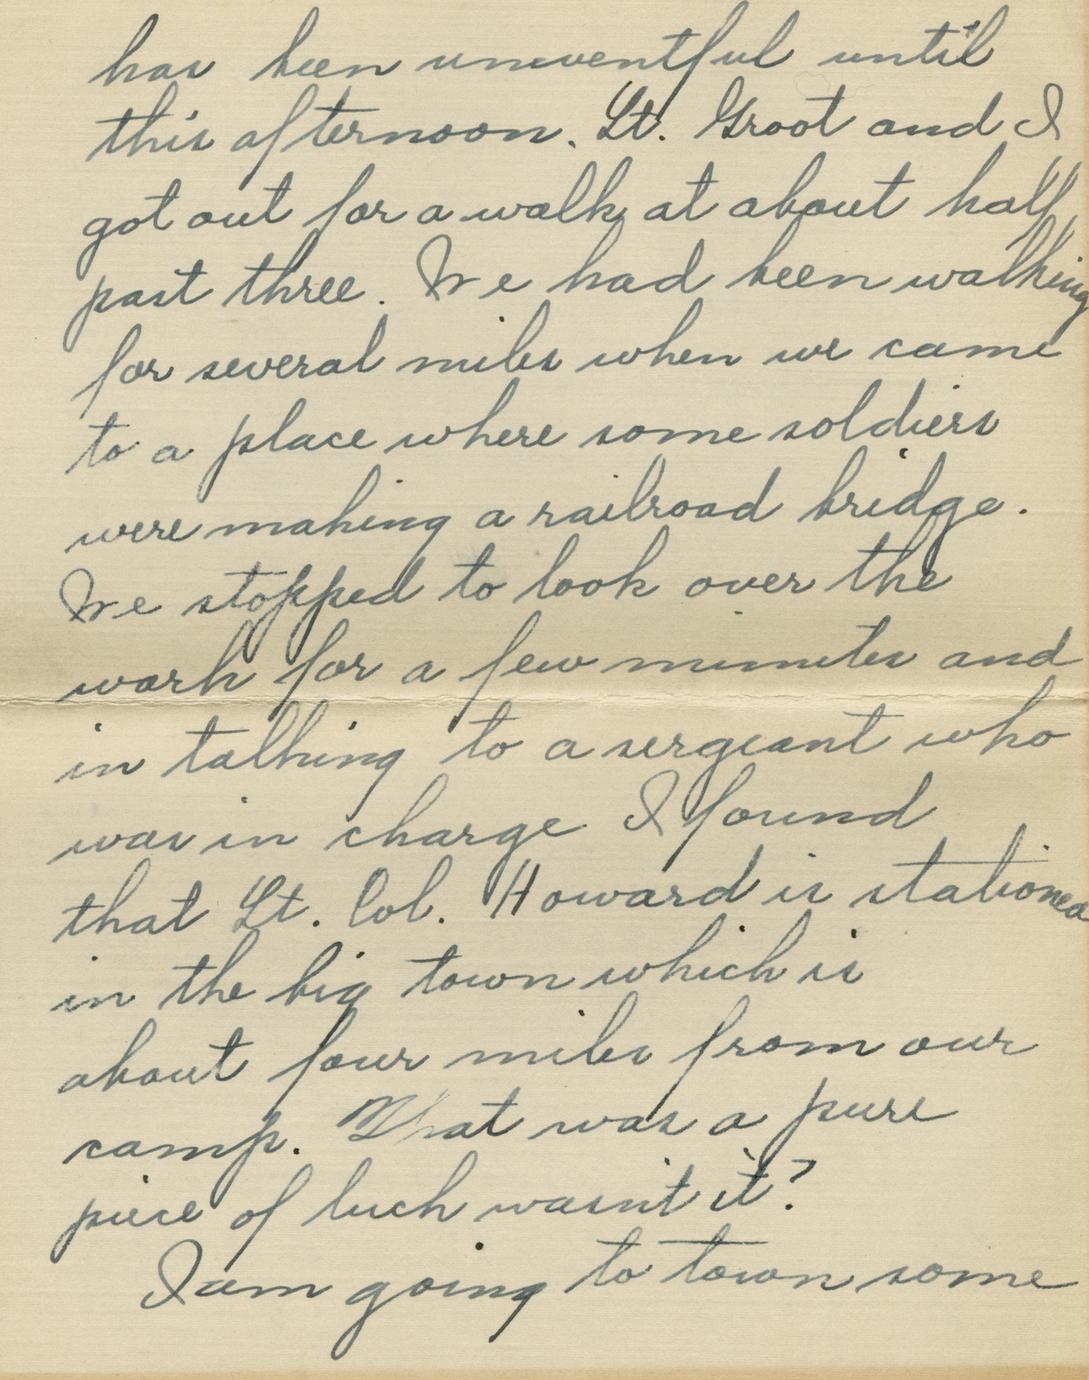 has been uneventful until
this afternoon. Lt. Groot and I
got out for a walk, at about half
past three. We had been walking
for several miles when we came
to a place where some soldiers
were making a railroad bridge.
We stopped to look over the
work for a few minutes and
in talking to a sergeant who
was in charge I found
that Lt. Col. Howard is stationed
in the big town which is
about four miles from our
camp. That was a pure
piece of luck wasn't it?
I am going to town some